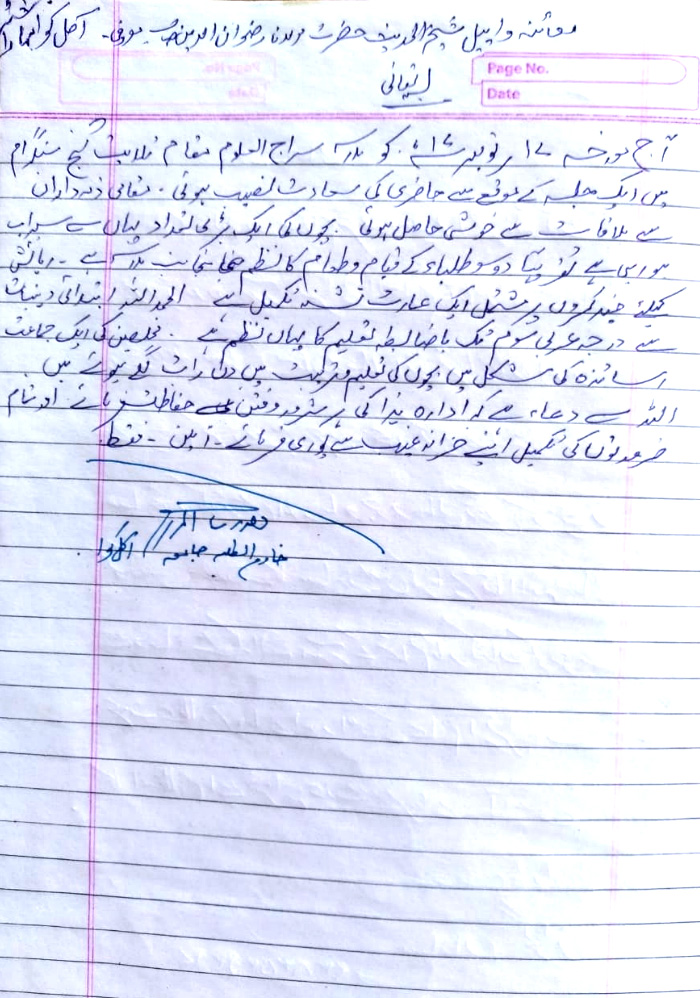 معائنہ و اپیل شیخ الحدیث حضرت مولانا رضوان الدین صاحب معروفی۔ اکل کوا مہاراشٹر
Page No.
Date
باسمہ تعالیٰ
آج مورخہ ۱۷ نومبر کو مدرسہ سراج العلوم مقام گنج
میں ایک جلسہ کے موقع سے حاضری کی سعادت نصیب ہوئی۔ مقامی ذمہ داران
سے ملاقات سے خوشی حاصل ہوئی۔ بچوں کی ایک بڑی تعداد یہاں سے سیراب
ہو رہی ہے تقریباً دو سو طلباء کے قیام و طعام کا نظم منجانب مدرسہ ہے۔ رہائش
کیلئے چند کمروں پر مشتمل ایک عمارت تشنہ تکمیل ہے الحمد للہ ابتدائی دینیات
سے درجہ عربی سوم تک باضابطہ تعلیم کا یہاں نظم ہے۔ مخلصین کی ایک جماعت
اساتذہ کی شکل میں بچوں کی تعلیم و تربیت میں دن رات لگے ہوئے ہیں۔
اللہ سے دعاء ہے کہ ادارہ ہذا کی ہر شرور و فتن سے حفاظت فرمائے اور تمام
ضرورتوں کی تکمیل اپنے خزانہ غیب سے پوری فرمائے۔ آمین۔ فقط
خادم الطلبہ جامعہ اکل کوا